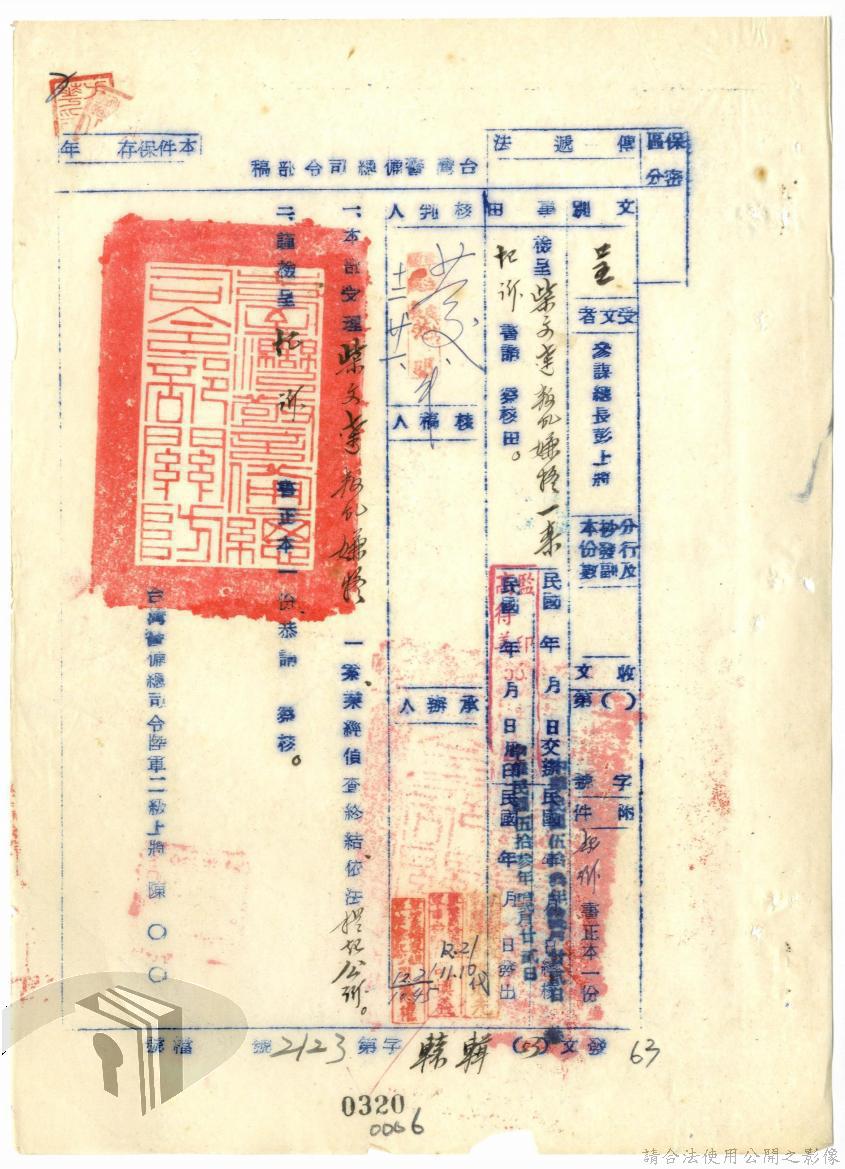 保密區分
傳遞法
本件保存　　年
台灣警備總司令部稿
文別　呈
受文者　參謀總長彭上將
分行及抄發副本份數
收文(　)字第　　號
附件　起訴書正本一份
事由　檢呈柴文達叛亂嫌疑一案
起訴書請　察核由。
民國　年　月　日交辦
民國　年　月　日
民國　年　月　日發出
中華民國伍拾參年
核判人
核稿人
承辦人
監印
12.21
11.10
代
12.21
10.45
一、本部受理柴文達叛亂嫌疑　一案、業經偵查終結、依法提起公訴。
二、謹檢呈起訴　書正本一份恭請　察核。
台灣警備總司令陸軍二級上將　陳○○
臺灣警備總司令部關防
發文(53)　字第2123號
檔號
63
0320
0066
請合法使用公開之影像